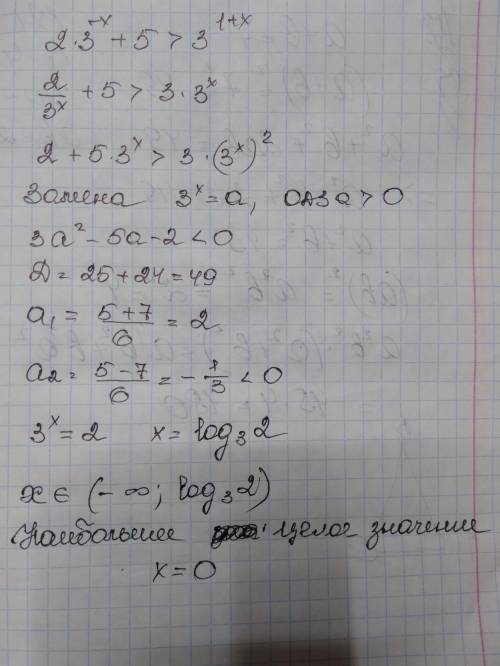 2·3^{-x} + 5 > 3^{1+x}
2/3^x + 5 > 3·3^x
2 + 5·3^x > 3·(3^x)^2
Замена 3^x = a, ОДЗ a > 0
3a^2 - 5a - 2 < 0
Д = 25 + 24 = 49
a_1 = (5+7)/6 = 2
a_2 = (5-7)/6 = -1/3 < 0
3^x = 2 x = log_3 2
x ∈ (-∞; log_3 2)
Наибольшее целое значение
x = 0